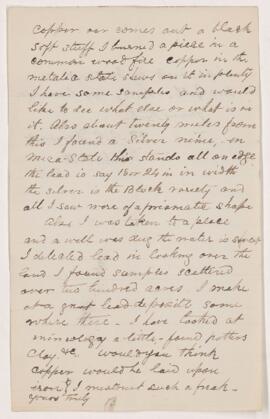 copper ore comes out a black
soft stuff I burned a piece in a
common wood fire copper in the
metalic state shews on it in plenty
I have some samples and would
like to see what else or what is in
it. Also about twenty meters from
this I found a silver mine, on
Mica-State this stands all on edge
the lead is say 18 or 24 in in width
the silver is the Black variety and
all I saw were of a prismatic shape
Also I was taken to a place
and a well was dug the water is sweet
I detected lead in looking over the
land I found samples scattered
over two hundred acres. I make
out a great lead deposit some
where there - I have looked at
minrology a little - found potters
clay, &c. would you think
copper would be laid upon
iron? I must such a freak-
yours truly